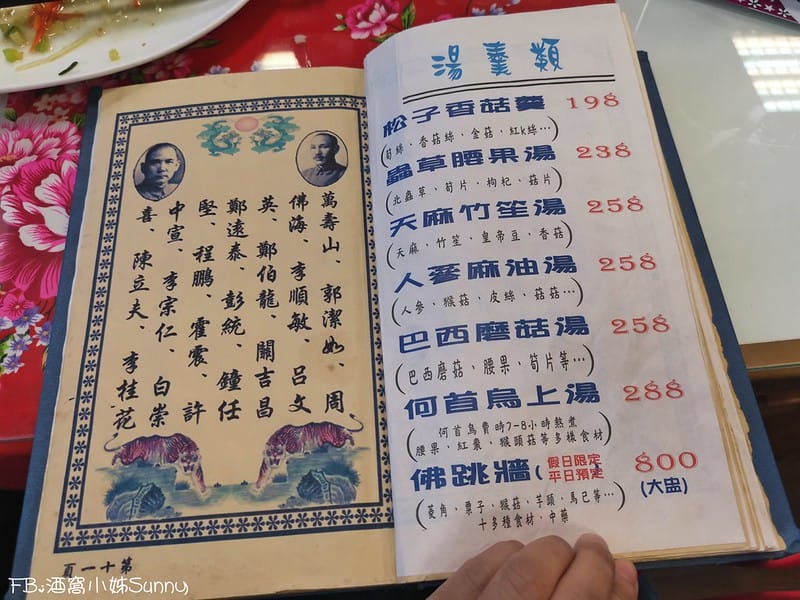 萬壽山、郭潔如、周
佛海、李順敏、呂文
英、鄭伯龍、關吉昌
鄭遠泰、彭統、鐘任
堅、程鵬、霍震、許
中宣、李宗仁、白崇
喜、陳立夫、李桂花
第十一頁
湯羹類
松子香菇羹 198
(筍絲、香菇絲、金菇、紅k絲…)
蟲草腰果湯 238
(北蟲草、筍片、枸杞、菇片)
天麻竹笙湯 258
(天麻、竹笙、皇帝豆、香菇)
人蔘麻油湯 258
(人參、猴菇、皮絲、菇菇…)
巴西磨菇湯 258
(巴西磨菇、腰果、筍片等…)
何首烏上湯 288
(何首烏費時7-8小時熬煮
腰果、紅棗、猴頭菇等多樣食材)
佛跳牆(假日限定
平日預定) 800
(大盅)
(菱角、栗子、猴菇、芋頭、馬已等…
十多種食材、中藥)
FB:酒窩小姊Sunny